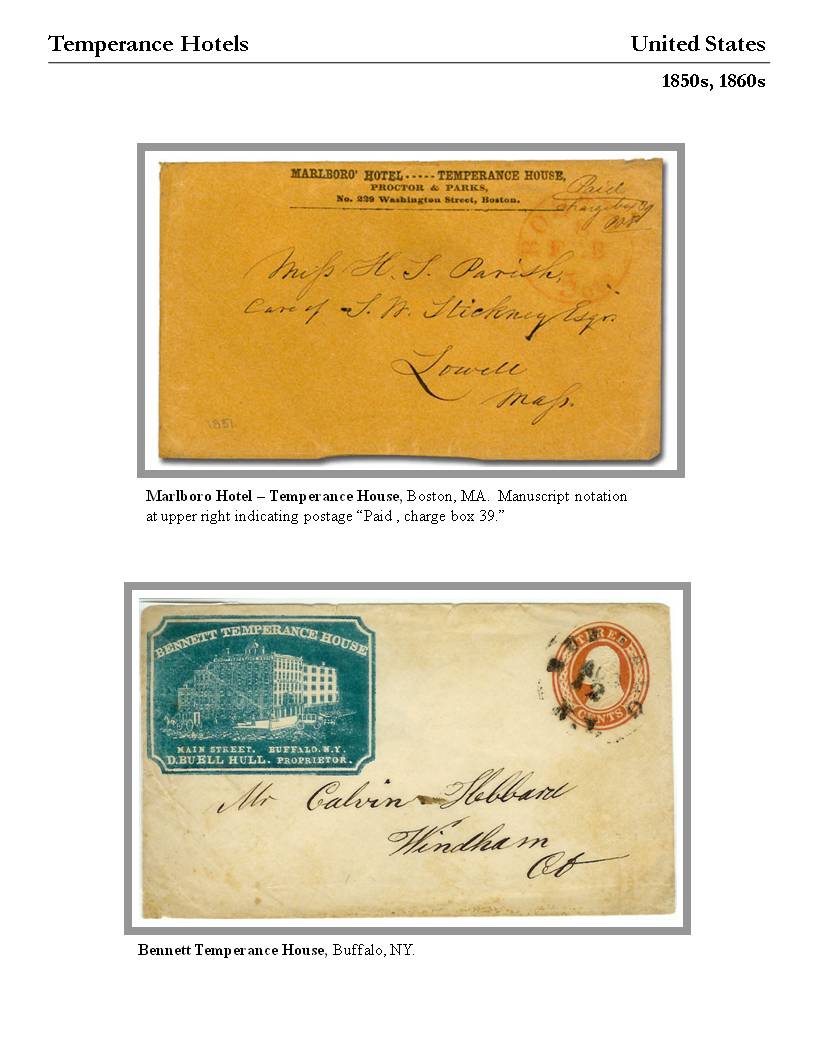 Temperance Hotels
United States
1850s, 1860s
MARLBORO' HOTEL ----- TEMPERANCE HOUSE,
PROCTOR & PARKS,
No. 229 Washington Street, Boston.
Paid
charge box 39
Miss H. S. Parish,
Care of S. W. Stickney Esqr.
Lowell
Mass.
1851
Marlboro Hotel – Temperance House, Boston, MA.  Manuscript notation
at upper right indicating postage “Paid , charge box 39.”
BENNETT TEMPERANCE HOUSE
MAIN STREET. BUFFALO. N.Y.
D. BUELL HULL. PROPRIETOR.
CENTS
Mr Calvin Hebbard
Windham
Ct
Bennett Temperance House, Buffalo, NY.